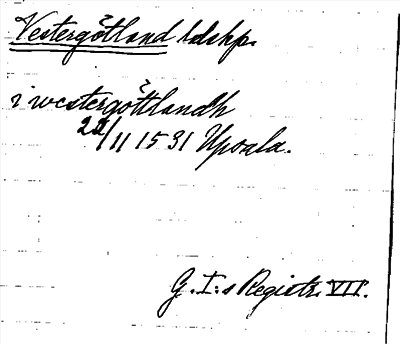 Vestergötland ldskp.
i westergöttlandh
22/11 1531 Upsala.
G. I:s Registr. VII.